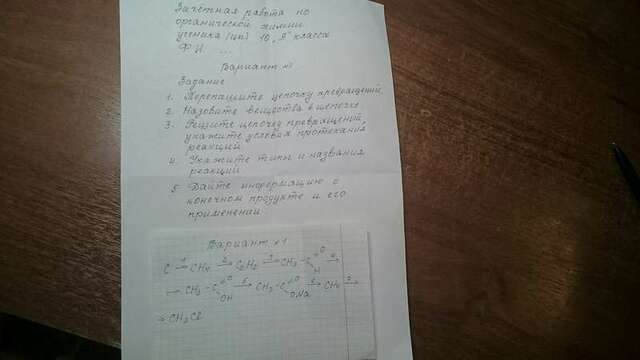 Зачетная работа по
органической химии
ученика (цы) 10 "Я" класса
Ф.И. ...
Вариант №
Задание
1. Перепишите цепочку превращений
2. Назовите вещества в цепочке
3. Решите цепочку превращений,
укажите условия протекания
реакций
4. Укажите типы и названия
реакций
5. Дайте информацию о
конечном продукте и его
применении.
Вариант №1
C →1 CH4 →2 C2H2 →3 CH3 - C =O H →4
→ CH3 - C =O OH →5 CH3 - C =O ONa →6 CH4 →
→ CH3Cl